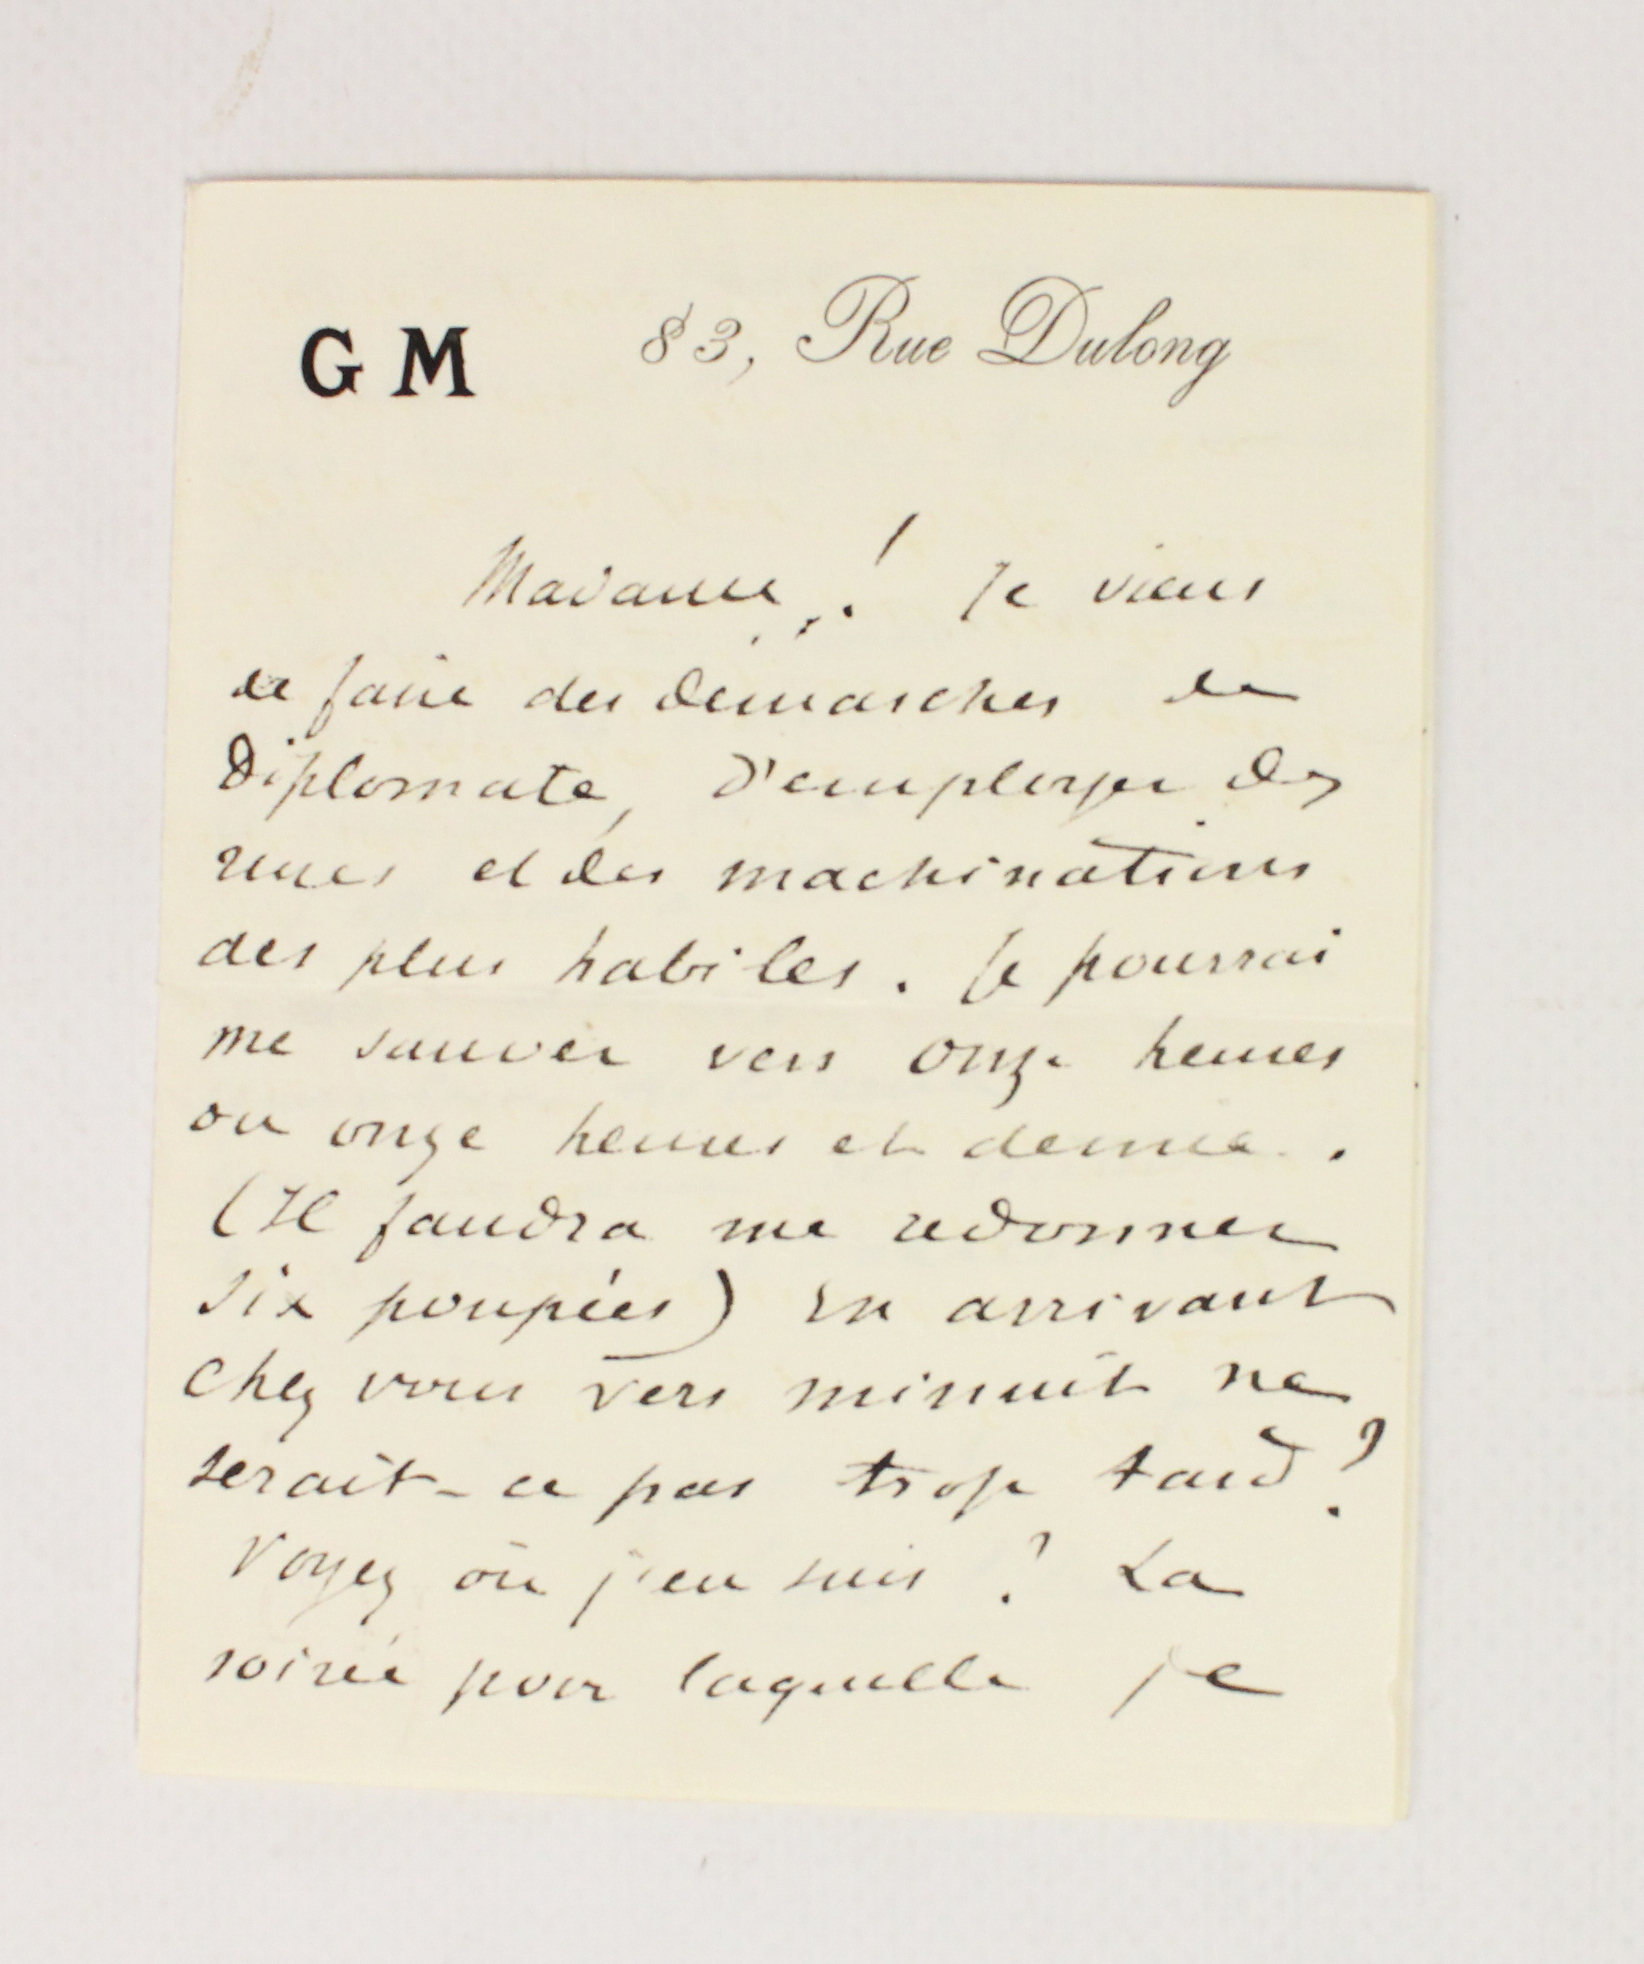 G M 83, Rue Dulong
Madame,! Je viens
de faire des démarches de
Diplomate, d'employer des
ruses et des machinations
des plus habiles. Je pourrai
me sauver vers onze heures
ou onze heures et demie.
(Il faudra me redonner
six poupées) En arrivant
chez vous vers minuit ne
serait-ce pas trop tard?
Voyez où j'en suis? La
soirée pour laquelle je